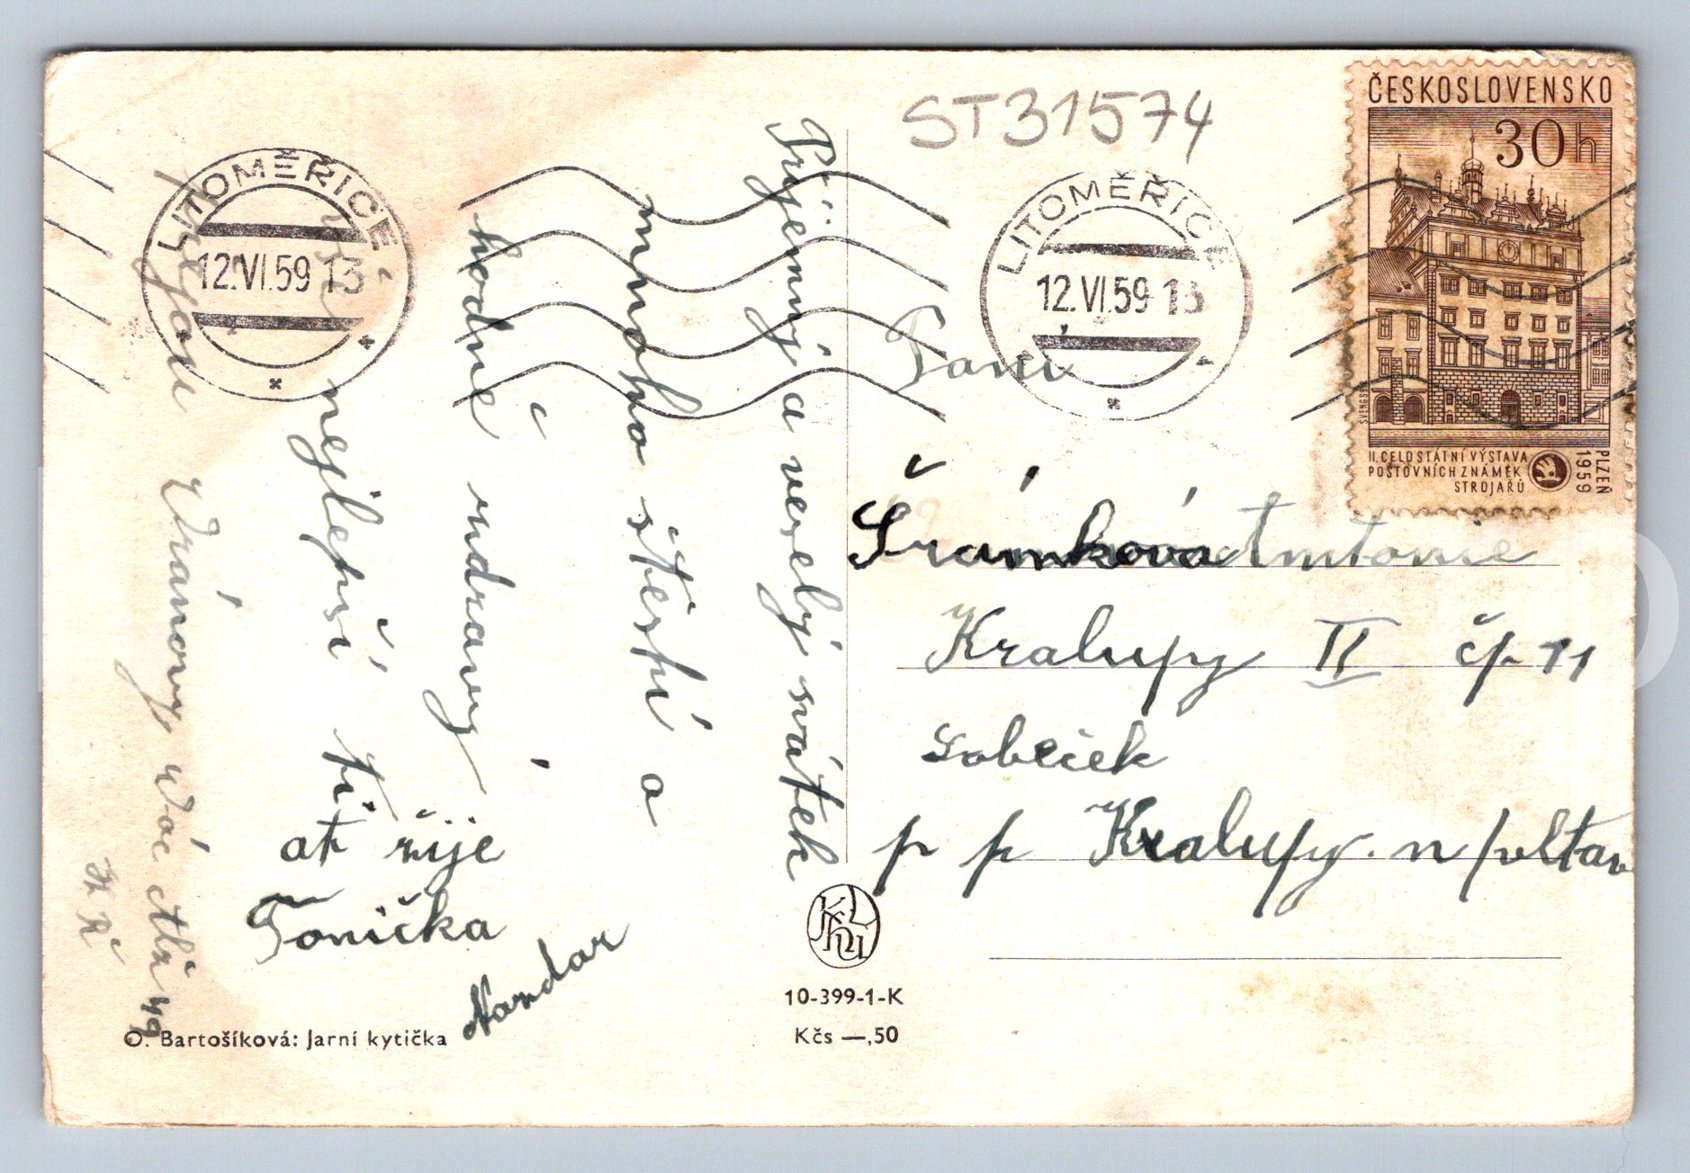 ST31574
ČESKOSLOVENSKO
30h
II. CELOSTÁTNÍ VÝSTAVA
POŠTOVNÍCH ZNÁMEK
STROJAŘŮ
PLZEŇ
1959
LITOMĚŘICE
12.VI.59 13
LITOMĚŘICE
12.VI.59 13
Příjemný a veselý svátek
mnoho štěstí a
hodně zdraví
nejlepší ti
přejou Vránovy
ať žije
Tonička
Nazdar
Paní
Šrámková Antonie
Kralupy II čp 11
Lobeček
p p Kralupy n/vltav
10-399-1-K
Kčs —,50
O. Bartošíková: Jarní kytička